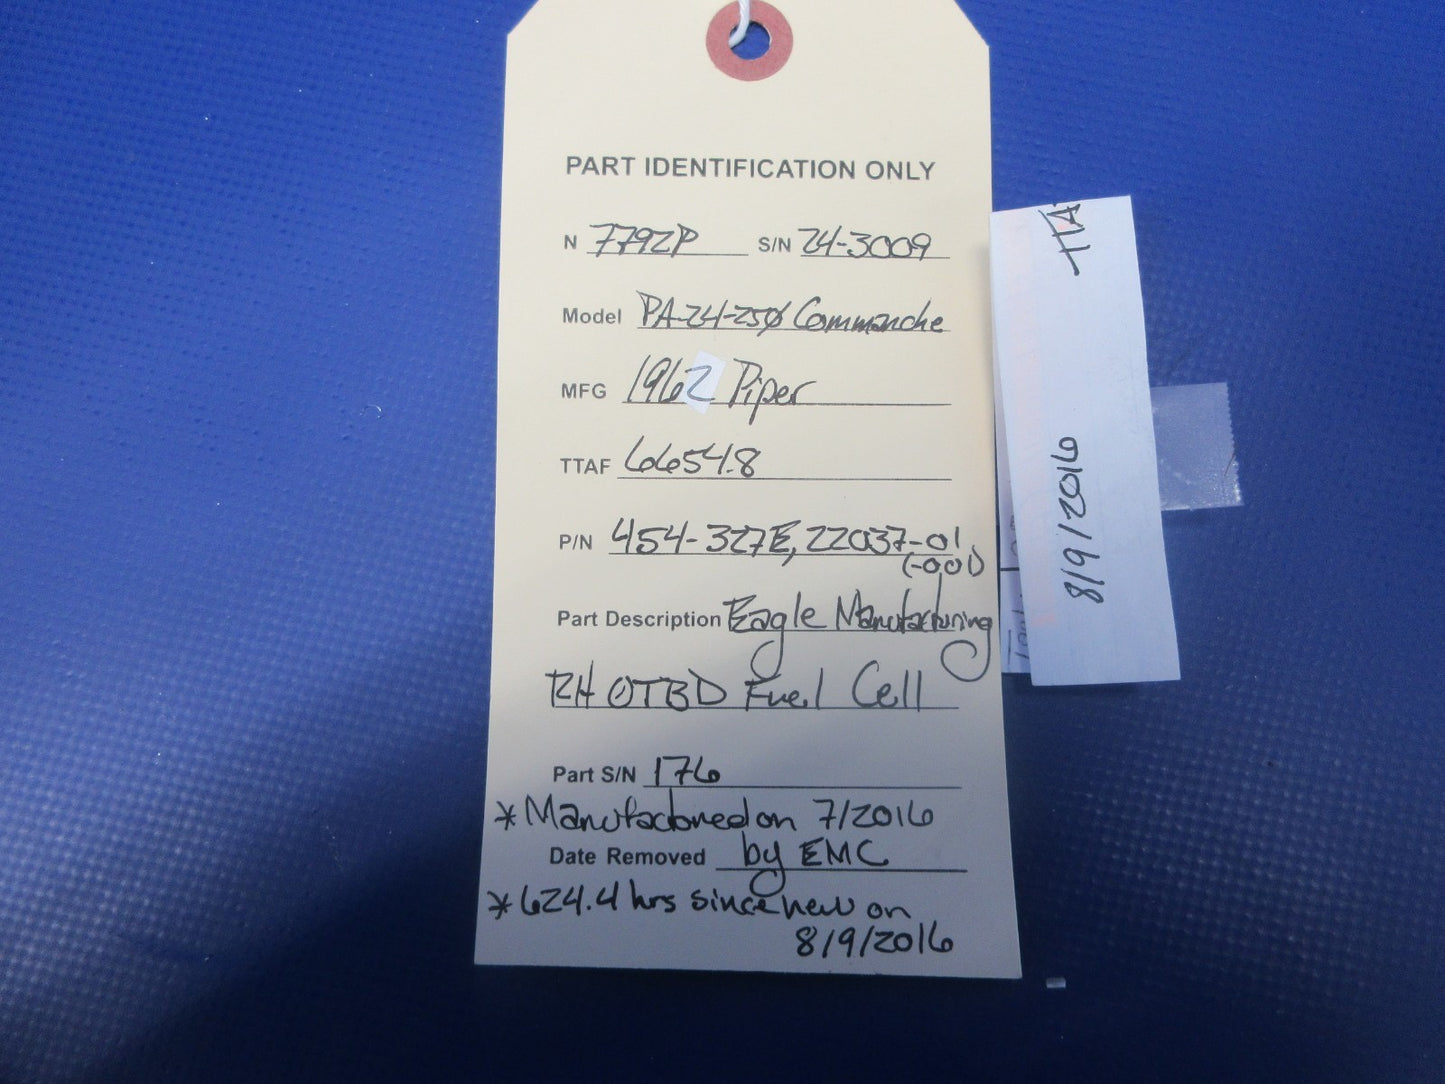 PART IDENTIFICATION ONLY
N 7792P S/N 24-3009
Model PA-24-250 Commanche
MFG 1962 Piper
TTAF 6654.8
P/N 454-327E, 22037-01
(-001)
Part Description Eagle Manufacturing
RH OTBD Fuel Cell
Part S/N 176
* Manufactured on 7/2016
Date Removed by EMC
* 624.4 hrs since new on
8/9/2016
8/9/2016